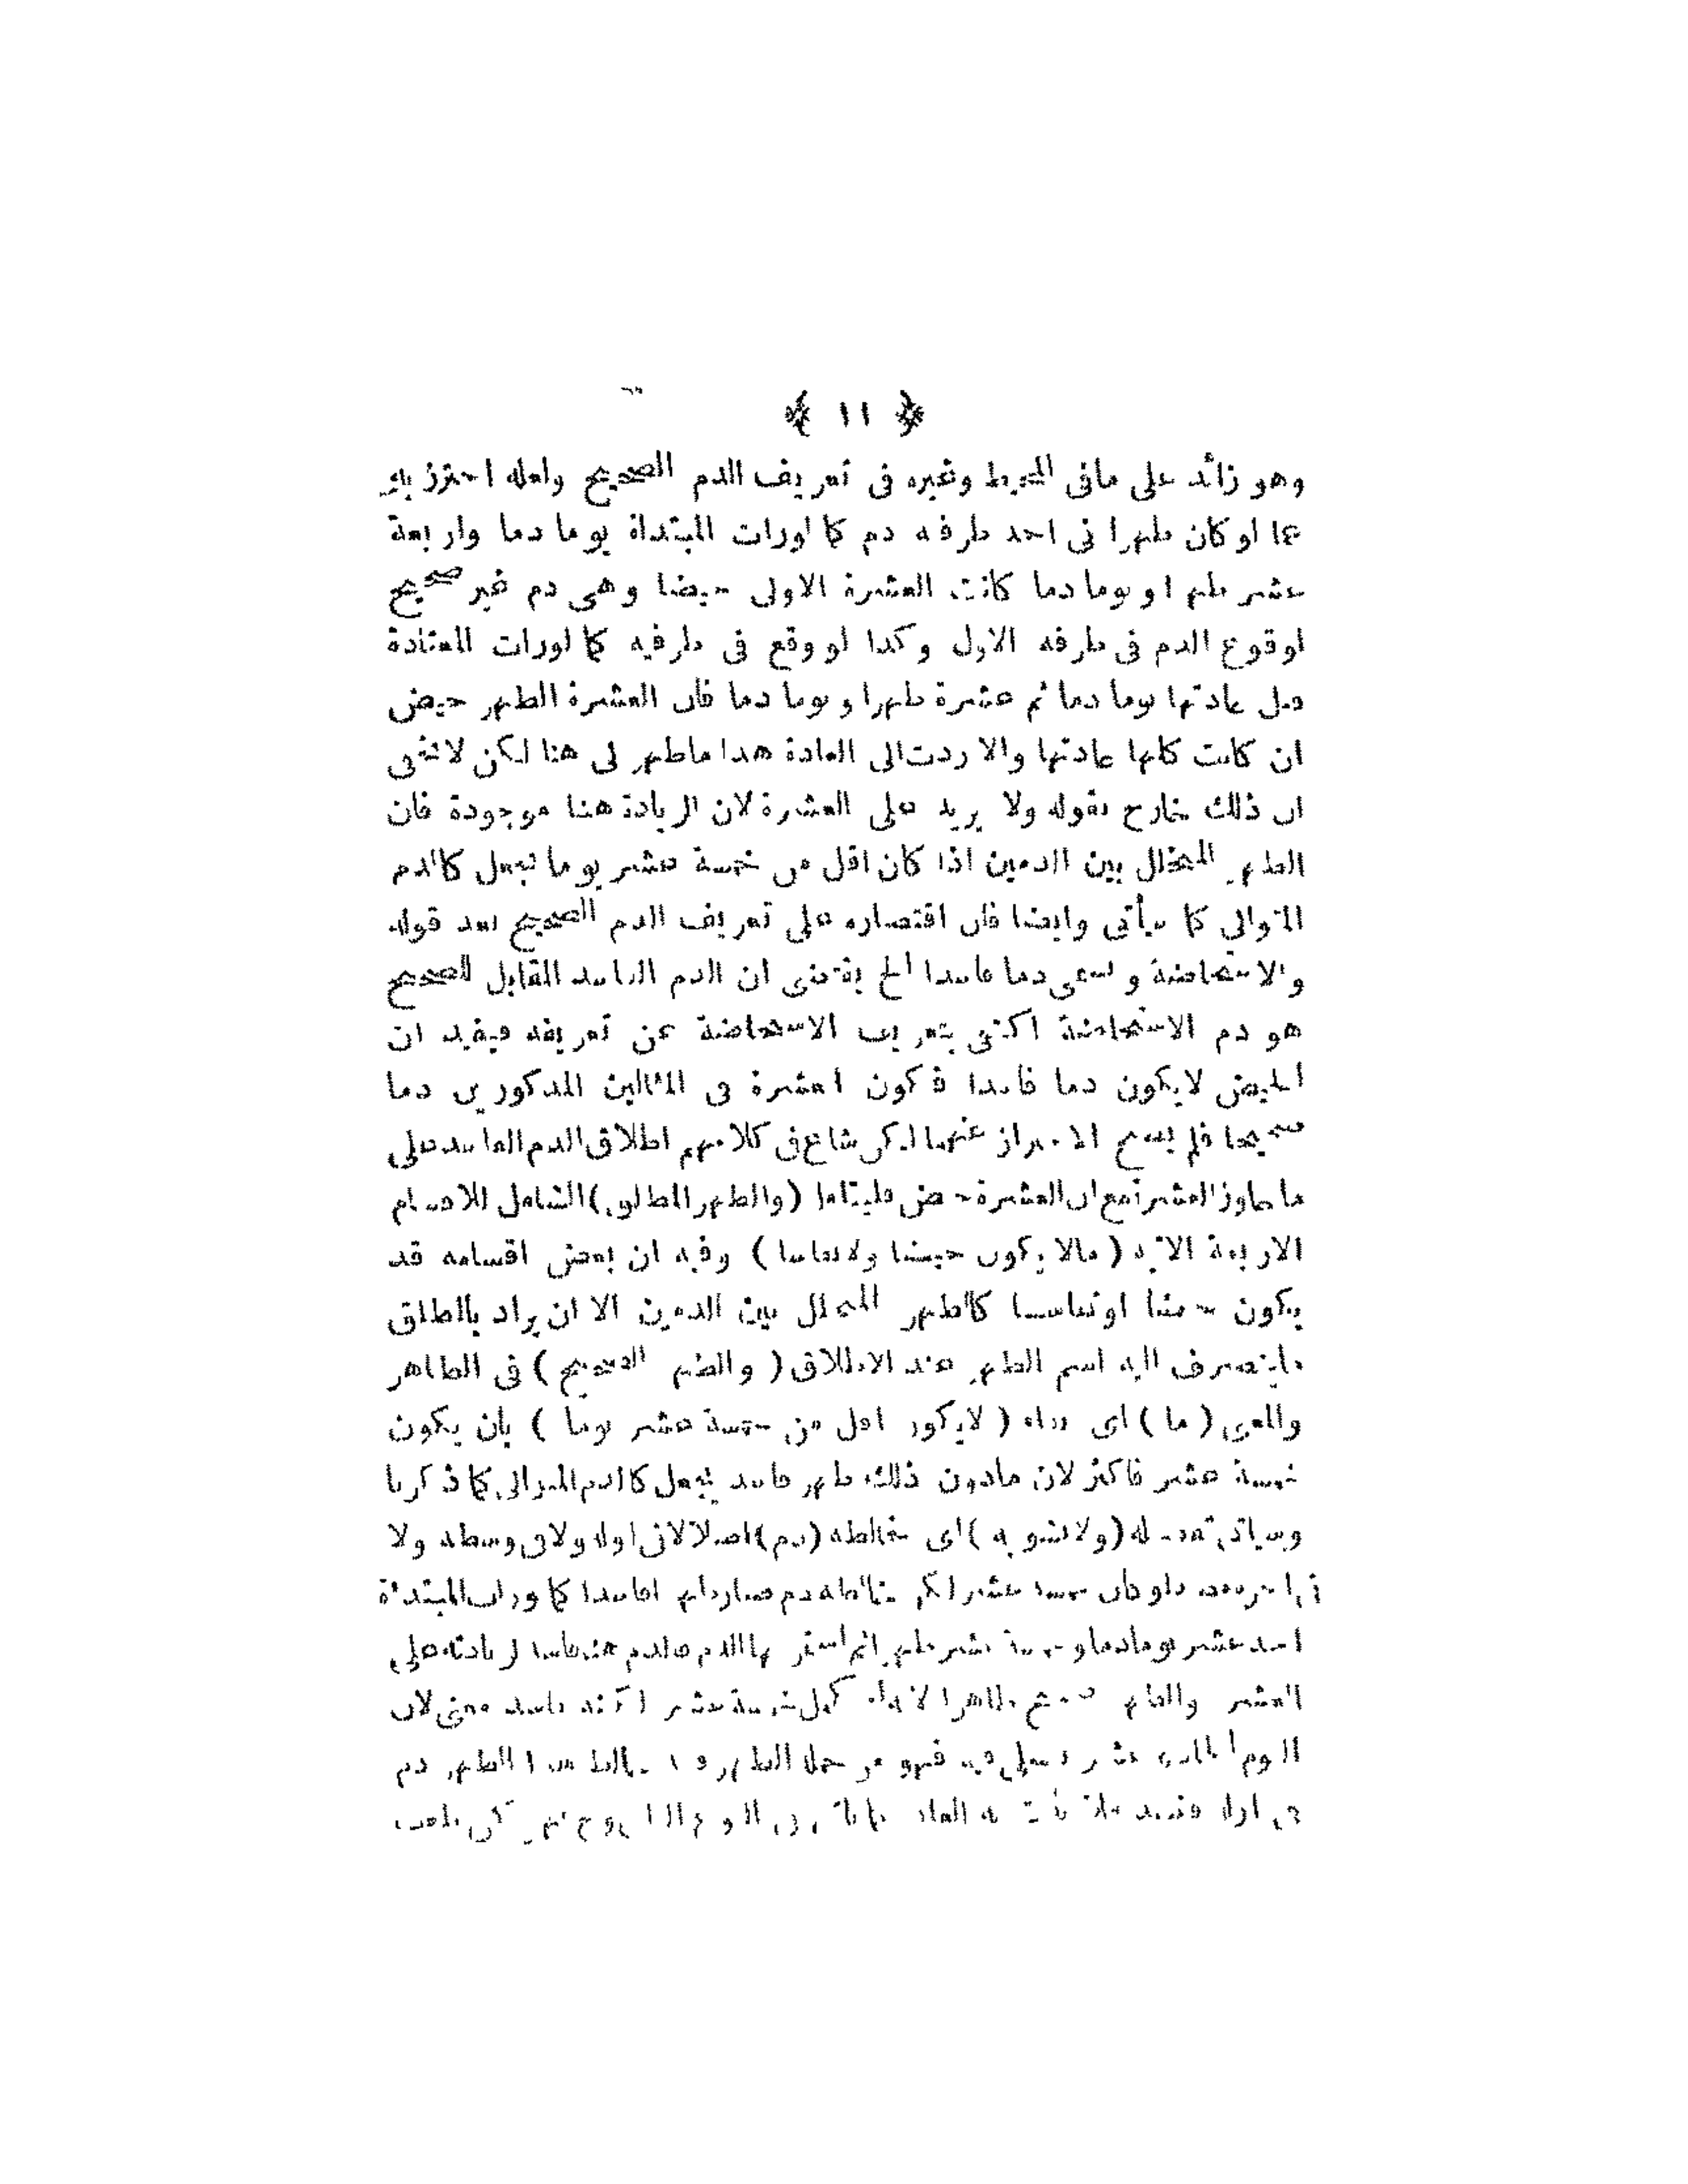 ﴿ ١١ ﴾
وهو زائد على مافى المحيط وغيره فى تعريف الدم الصحيح ولعله احترز به
عما لو كان طهرا فى احد طرفه دم كما لورات المبتدأة يوما دما واربعة
عشر طهرا ويوما دما كانت العشرة الاولى حيضا وهى دم غير صحيح
لوقوع الدم فى طرفه الاول وكذا لو وقع فى طرفيه كما لورات المعتادة
قبل عادتها يوما دما ثم عشرة طهرا ويوما دما فان العشرة الطهر حيض
ان كانت كلها عادتها والا ردت الى العادة هذا ماظهر لى هنا لكن لايخفى
ان ذلك خارج بقوله ولا يزيد على العشرة لان الزيادة هنا موجودة فان
الطهر المتخلل بين الدمين اذا كان اقل من خمسة عشر يوما يجعل كالدم
المتوالى كما سيأتى وايضا فان اقتصاره على تعريف الدم الصحيح بعد قوله
والاستحاضة وتسمى دما فاسدا الخ يقتضى ان الدم الفاسد المقابل للصحيح
هو دم الاستحاضة اكتفى بتعريف الاستحاضة عن تعريفه فيفيد ان
الحيض لايكون دما فاسدا فتكون العشرة فى المثالين المذكورين دما
صحيحا فلم يصح الاحتراز عنهما لكن شاع فى كلامهم اطلاق الدم الفاسد على
ماجاوز العشرة مع ان العشرة حيض فليتامل (والطهر المطلق) الشامل للاقسام
الاربعة الاتية (مالا يكون حيضا ولانفاسا) وفيه ان بعض اقسامه قد
يكون حيضا اونفاسا كالطهر المتخلل بين الدمين الا ان يراد بالمطلق
ماينصرف اليه اسم الطهر عند الاطلاق (والطهر الصحيح) فى الظاهر
والمعنى (ما) اى نقاء (لايكون اقل من خمسة عشر يوما) بان يكون
خمسة عشر فاكثر لان مادون ذلك طهر فاسد يجعل كالدم المتوالى كما ذكرنا
وسياتى له (ولايشوبه) اى يخالطه (دم) اصلا لافى اوله ولافى وسطه ولا
فى اخره فلو كان خمسة عشر لكن خالطه دم صار طهرا فاسدا كما لورات المبتدأة
احد عشر يومادما وخمسة عشر طهرا ثم استمر بها الدم فالدم هنا فاسد لزيادته على
العشر والطهر صحيح ظاهرا لانه كمل خمسة عشر لكنه فاسد معنى لان
اليوم الحادى عشر تصلى فيه فهو من جملة الطهر وقد خالط هذا الطهر دم
فى اوله ففسد